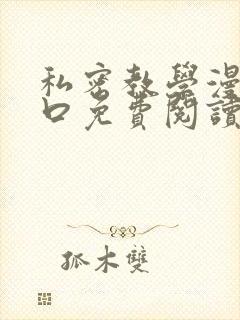 私密教學漫
口免費閱讀
孤木雙